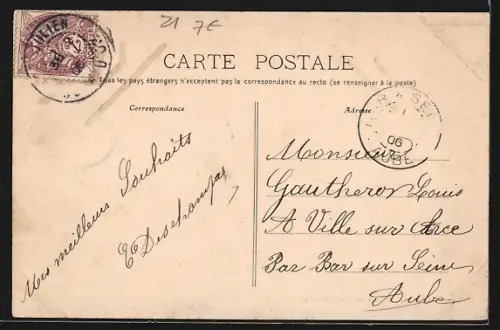 21 7€
CARTE POSTALE
Tous les pays étrangers n'acceptent pas la correspondance au recto (se renseigner à la poste)
Correspondance
Adresse
Mes meilleurs Souhaits
E Deschamps
BAR SEI
06
AUBE
Monsieur
Gautherot Louis
A Ville sur Arce
Par Bar sur Seine
Aube